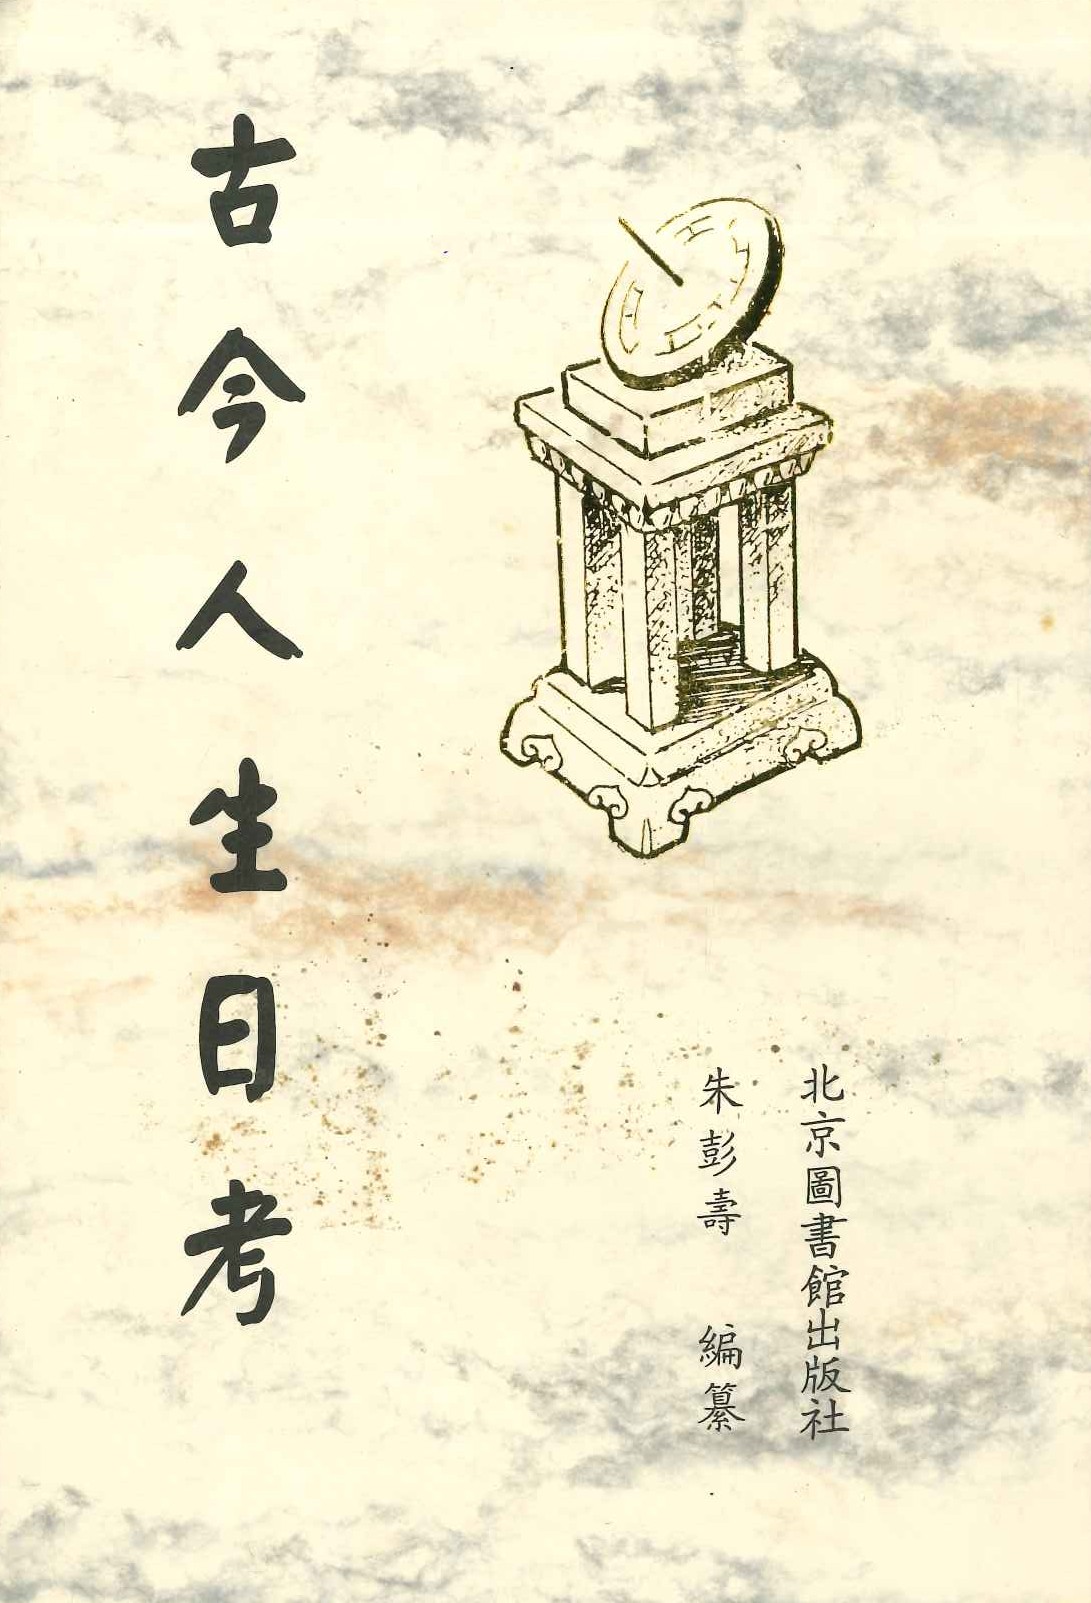 古今人生日考
朱彭壽 編纂
北京圖書館出版社